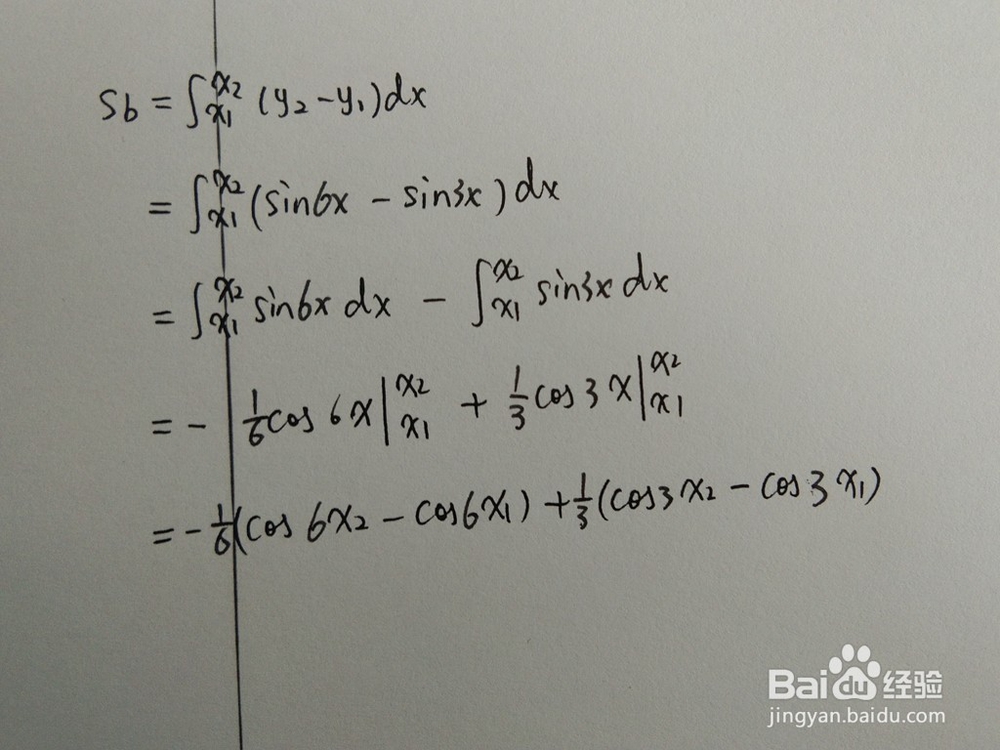 Sb = ∫_{x₁}^{x₂} (y₂ - y₁) dx
= ∫_{x₁}^{x₂} (sin6x - sin3x) dx
= ∫_{x₁}^{x₂} sin6x dx - ∫_{x₁}^{x₂} sin3x dx
= - 1/6 cos 6x |_{x₁}^{x₂} + 1/3 cos 3x |_{x₁}^{x₂}
= - 1/6 (cos 6x₂ - cos6x₁) + 1/3 (cos3x₂ - cos3x₁)
Baidu 经验
jingyan.baidu.com